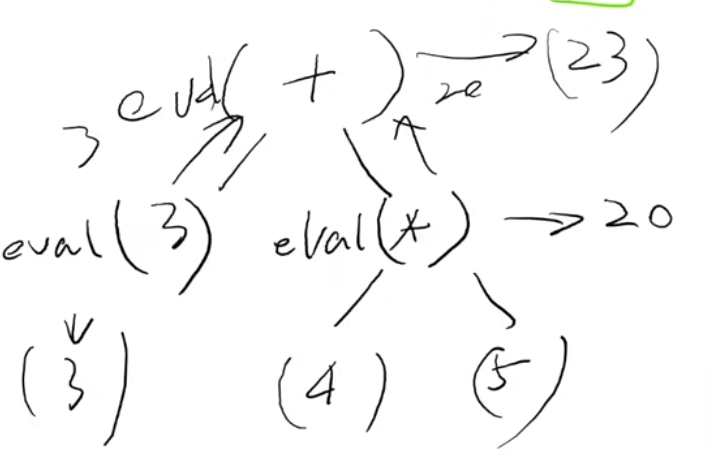 eval( + ) → (23)
3 20
eval(3) eval(*) → 20
(3) (4) (5)